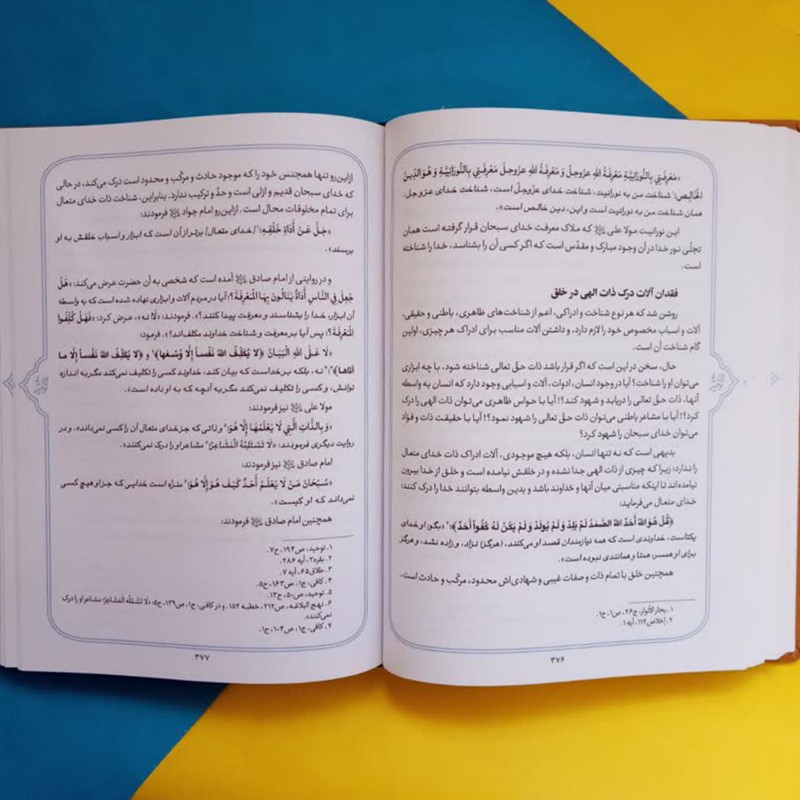 «مَعْرِفَتِي بِالنُّورَانِيَّةِ مَعْرِفَةُ اللَّهِ عَزَّوَجلَّ وَ مَعْرِفَةُ اللَّهِ عَزَّوَجلَّ مَعْرِفَتِي بِالنُّورَانِيَّةِ وَ هُوَ الدِّينُ
الْخَالِصُ؛ شناخت من به نورانیت، شناخت خدای عزّوجلّ است، شناخت خدای عزّوجلّ،
همان شناخت من به نورانیت است و این، دین خالص است».
این نورانیت مولا علی که ملاک معرفت خدای سبحان قرار گرفته است همان
تجلّی نور خدا در آن وجود مبارک و مقدّس است که اگر کسی آن را بشناسد، خدا را شناخته
است.
فقدان آلات درک ذات الهی در خلق
روشن شد که هر نوع شناخت و ادراکی، اعم از شناخت‌های ظاهری، باطنی و حقیقی،
آلات و اسباب مخصوص خود را لازم دارد، و داشتن آلات مناسب برای ادراک هر چیزی، اولین
گام شناخت آن است.
حال، سخن در این است که اگر قرار باشد ذات حقّ تعالی شناخته شود، با چه ابزاری
می‌توان او را شناخت؟ آیا در وجود انسان، ادوات، آلات و اسبابی وجود دارد که انسان به واسطه
آنها، ذات حقّ تعالی را دریابد و شهود کند؟! آیا با حواس ظاهری می‌توان ذات الهی را درک
کرد؟! آیا با مشاعر باطنی می‌توان ذات حقّ تعالی را شهود نمود؟! آیا با حقیقت ذات و فؤاد
می‌توان خدای سبحان را شهود کرد؟
بدیهی است که نه تنها انسان، بلکه هیچ موجودی، آلات ادراک ذات خدای متعال
را ندارد؛ زیرا که چیزی از ذات الهی جدا نشده و در خلقش نیامده است و خلق از خدا بیرون
نیامده‌اند تا اینکه مناسبتی میان آنها و خداوند باشد و بدین واسطه بتوانند خدا را درک کنند؛
خدای متعال می‌فرماید:
﴿قُلْ هُوَ اللَّهُ أَحَدٌ اللَّهُ الصَّمَدُ لَمْ يَلِدْ وَ لَمْ يُولَدْ وَ لَمْ يَكُنْ لَهُ كُفُوًا أَحَدٌ﴾؛ «بگو: او خدای
یکتاست، خداوندی است که همه نیازمندان قصد او می‌کنند، (هرگز) نزاد، و زاده نشد، و هرگز
برای او همسر، همتا و همانندی نبوده است».
همچنین خلق با تمام ذات و صفات غیبی و شهادی‌اش محدود، مرکّب و حادث است.
۱. بحار الأنوار، ج۲۶، ص۱، ح۱.
۲. إخلاص۱۱۲، آیه۱.
۳۷۶
ازاین‌رو تنها همجنس خود را که موجود حادث و مرکّب و محدود است درک می‌کند، در حالی
که خدای سبحان قدیم و ازلی است و حدّ و ترکیب ندارد. بنابراین، شناخت ذات خدای متعال
برای تمام مخلوقات محال است. ازاین‌رو امام جواد فرمودند:
«جَلَّ عَنْ أَدَاةِ خَلْقِهِ؛ [خدای متعال] برتر از آن است که ابزار و اسباب خلقش به او
برسند».
و در روایتی از امام صادق آمده است که شخصی به آن حضرت عرض می‌کند: «هَلْ
جُعِلَ فِي النَّاسِ أَدَاةٌ يَنَالُونَ بِهَا الْمَعْرِفَةَ؟؛ آیا در مردم آلات و ابزاری نهاده شده است که به واسطه
آن ابزار، خدا را بشناسند و معرفت پیدا کنند؟». فرمودند: «لَا نه»، عرض کرد: «فَهَلْ كُلِّفُوا
الْمَعْرِفَةَ؟؛ پس آیا بر معرفت و شناخت خداوند مکلف‌اند؟». فرمود:
«لَا عَلَى اللَّهِ الْبَيَانُ ﴿لَا يُكَلِّفُ اللَّهُ نَفْسًا إِلَّا وُسْعَهَا﴾ و ﴿لَا يُكَلِّفُ اللَّهُ نَفْسًا إِلَّا مَا
آتَاهَا﴾؛ نه، بلکه بر خداست که بیان کند، خداوند کسی را تکلیف نمی‌کند مگر به اندازه
توانش، و کسی را تکلیف نمی‌کند مگر به آنچه که به او داده است».
مولا علی نیز فرمودند:
«وَ بِالذَّاتِ الَّتِي لَا يَعْلَمُهَا إِلَّا هُوَ؛ و ذاتی که جز خدای متعال آن را کسی نمی‌داند». و در
روایت دیگری فرمودند: «لَا تَسْتَلِمُهُ الْمَشَاعِرُ؛ مشاعر او را درک نمی‌کنند».
امام صادق نیز فرمودند:
«سُبْحَانَ مَنْ لَا يَعْلَمُ أَحَدٌ كَيْفَ هُوَ إِلَّا هُوَ؛ منزّه است خدایی که جز او هیچ کسی
نمی‌داند که او کیست».
همچنین امام صادق فرمودند:
۱. توحید، ص۱۹۴، ح۷.
۲. بقره۲، آیه ۲۸۶.
۳. طلاق۶۵، آیه ۷.
۴. کافی، ج۱، ص۱۶۳، ح۵.
۵. توحید، ص۵۰، ح۱۳.
۶. نهج البلاغه، ص۲۱۲، خطبه ۱۵۲. و در کافی، ج۱، ص۱۳۹، ح۵: «لَا تَشْمُلُهُ الْمَشَاعِرُ؛ مشاعر او را درک
نمی‌کنند».
۷. کافی، ج۱، ص۱۰۴، ح۱.
۳۷۷